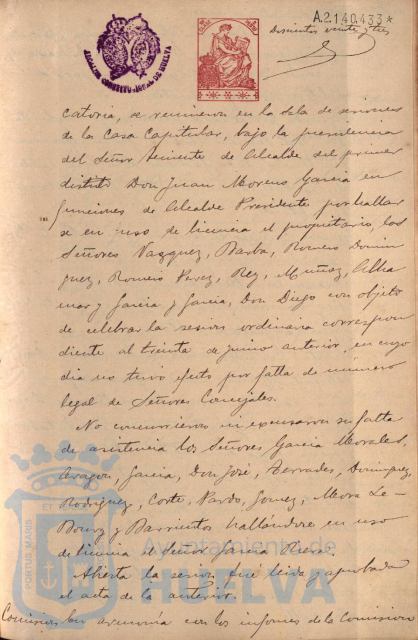 A.2.140.433*
Doscientos veinte y tres
ALCALDIA CONSTITUCIONAL DE HUELVA
catoria, se reunieron en la Sala de sesiones
de la Casa Capitular, bajo la presidencia
del Señor Teniente de Alcalde del primer
distrito Don Juan Moreno Garcia en
funciones de Alcalde Presidente por hallar
se en uso de licencia el propietario, los
Señores Vazquez, Barba, Romero Domin
guez, Romero Perez, Rey, Muñoz, Alba
y Garcia y Garcia, Don Diego con objeto
de celebrar la sesion ordinaria correspon
diente al treinta de junio anterior, en cuyo
dia no tuvo efecto por falta de número
legal de Señores Concejales.
No concurrieron ni excusaron su falta
de asistencia los Señores Garcia Morales,
Aragon, Garcia, Don José, Terrades, Dominguez,
Rodriguez, Corte, Pardo, Gomez, Mora Le
y Barrientos hallandose en uso
de licencia el Señor Garcia
Abierta la sesion fué leida y aprobada
el acta de la anterior.
Comision en armonia con los informes de la Comision
PORTUS MARIS
Ayuntamiento de
HUELVA